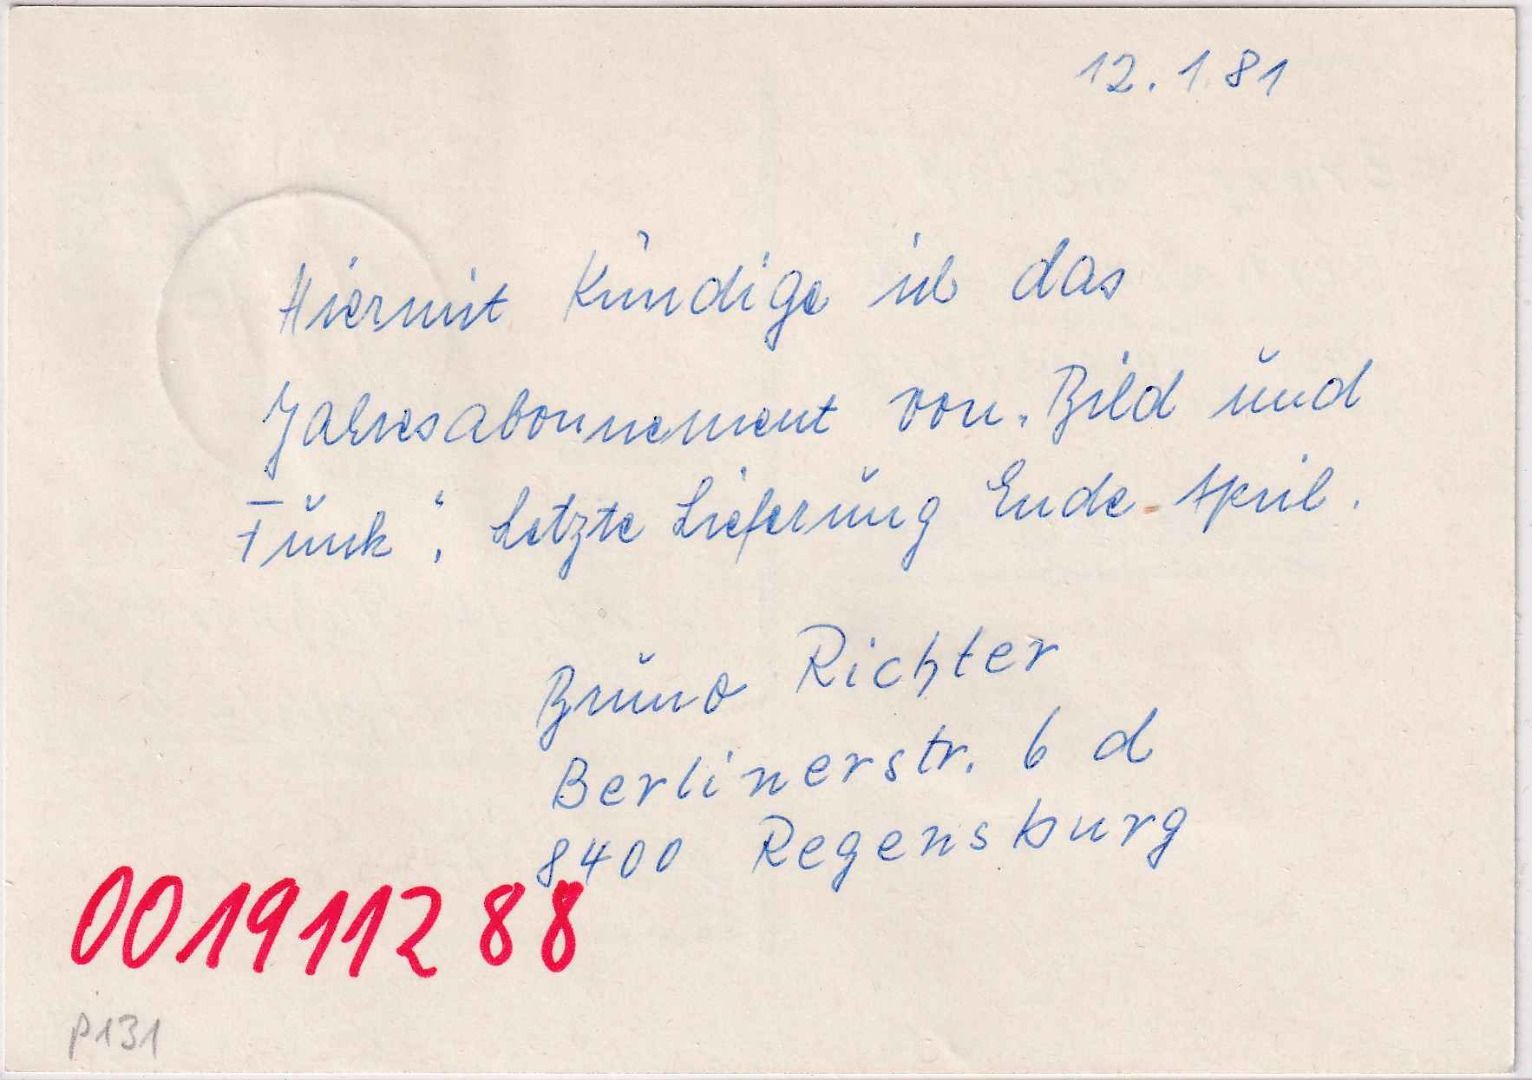 12.1.81
Hiermit kündige ich das
Jahresabonnement von „Bild und
Funk“. Letzte Lieferung Ende April.
Bruno Richter
Berlinerstr. 6 d
8400 Regensburg
001911288
P131